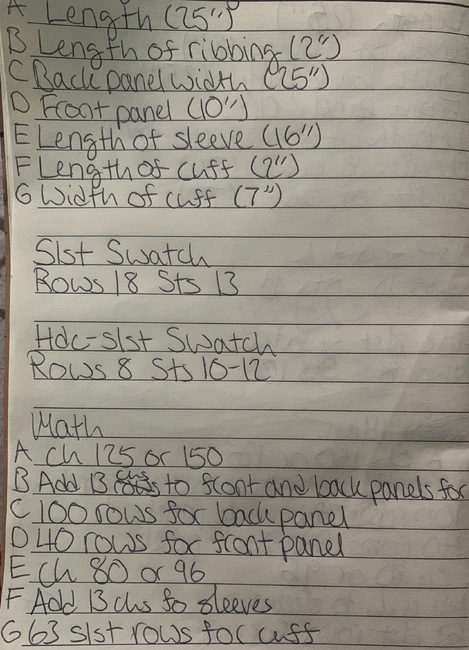 A Length (25")
B Length of ribbing (2")
C Back panel width (25")
D Front panel (10")
E Length of sleeve (16")
F Length of cuff (2")
G Width of cuff (7")
Slst Swatch
Rows 18 Sts 13
Hdc-slst Swatch
Rows 8 Sts 10-12
Math
A Ch 125 or 150
B Add 13 chs to front and back panels for
C 100 rows for back panel
D 40 rows for front panel
E Ch 80 or 96
F Add 13 chs fo sleeves
G 63 slst rows for cuff